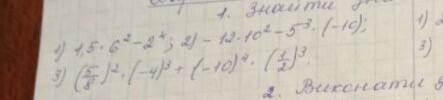 1. Знайти
1) 1,5 · 6² - 2⁴; 2) - 12 · 10² - 5³ · (-10); 1)
3) (5/8)² · (-4)³ + (-10)⁴ · (1/2)³. 3)
2. Виконати